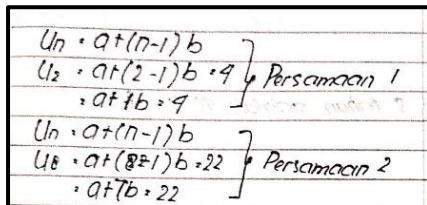 Un = a+(n-1)b
U2 = a+(2-1)b = 4
= a+1b = 4
Persamaan 1
Un = a+(n-1)b
U8 = a+(8-1)b = 22
= a+7b = 22
Persamaan 2